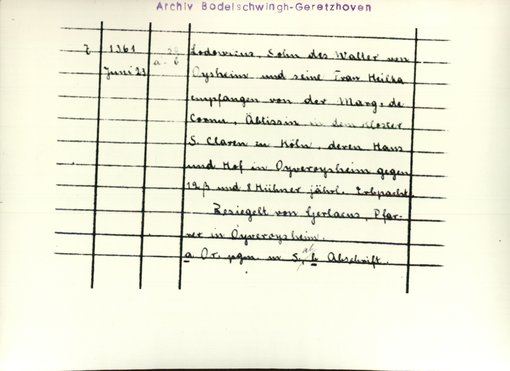 Archiv Bodelschwingh-Geretzhoven
7 1361 Lodowicus, Sohn des Walter von
Juni 23 a. b Oysheim und seine Frau Heilka
empfangen von der Marg. de
Cornu, Äbtissin in dem Kloster
S. Claren in Köln, deren Haus
und Hof in Oyveroysheim gegen
12 β und 8 Hühner jährl. Erbpacht.
Besiegelt von Gerlacus, Pfar-
rer in Oyveroysheim.
a Or. pgm. m S, ab b Abschrift.